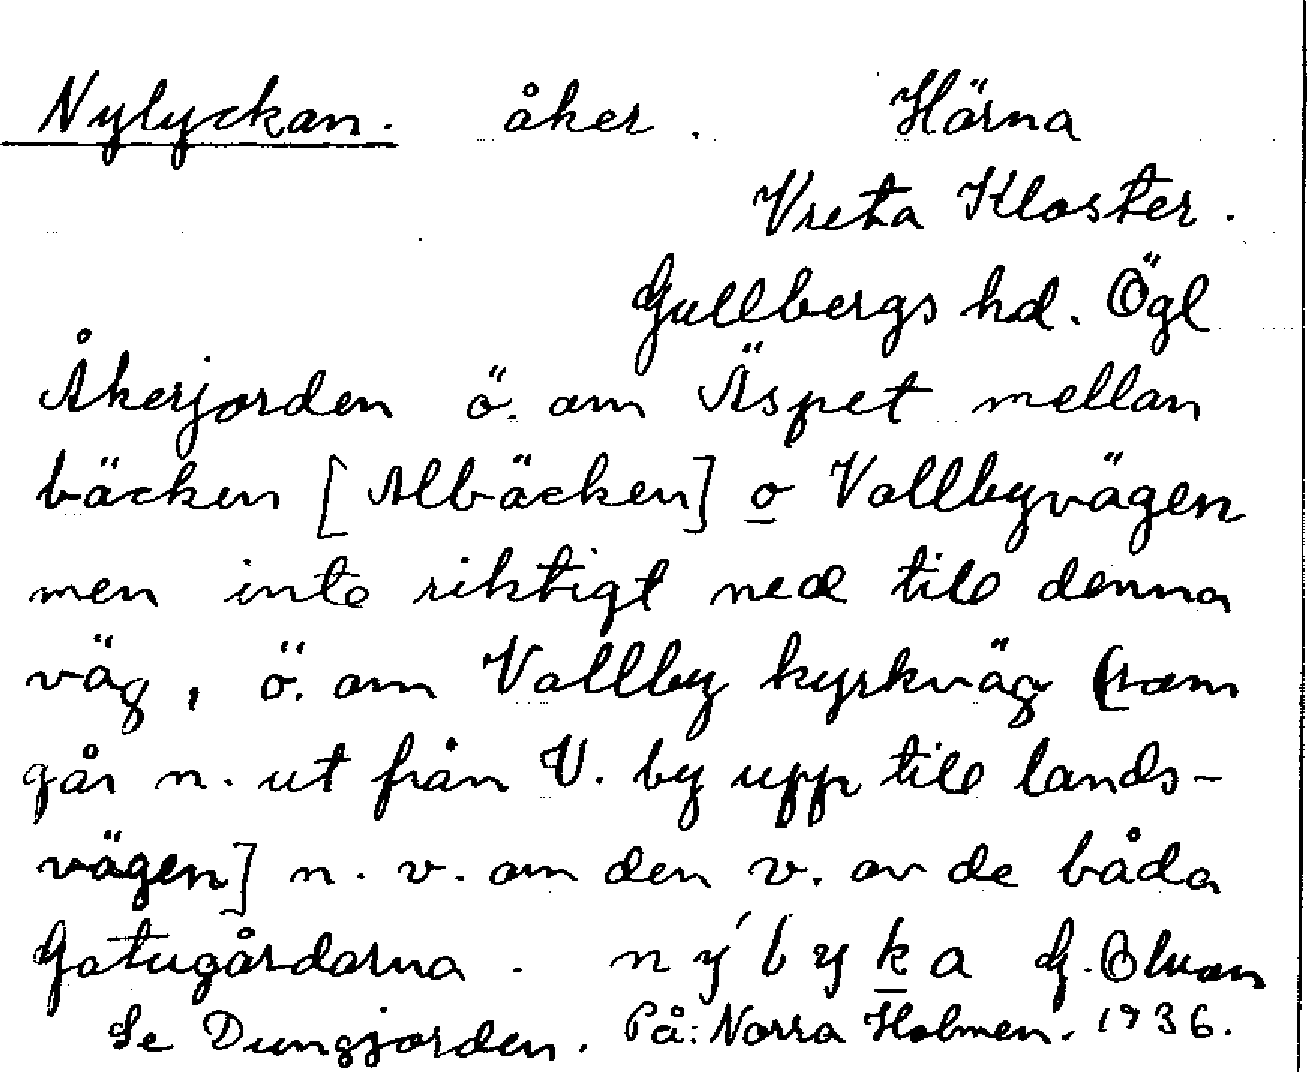 Nylyckan. åker. Härna
Vreta Kloster.
Gullbergs hd. Ögl
Åkerjorden ö. om Äspet mellan
bäcken [Albäcken] o Vallbyvägen
men inte riktigt ned till denna
väg, ö. om Vallby kyrkväg [som
går n. ut från V. by upp till lands-
vägen] n. v. om den v. av de båda
Gatugårdarna. nýlyka G.
Se Dungjorden. På: Norra Holmen. 1936.